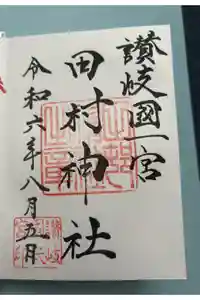 讃岐國一宮
田村神社
令和六年八月五月